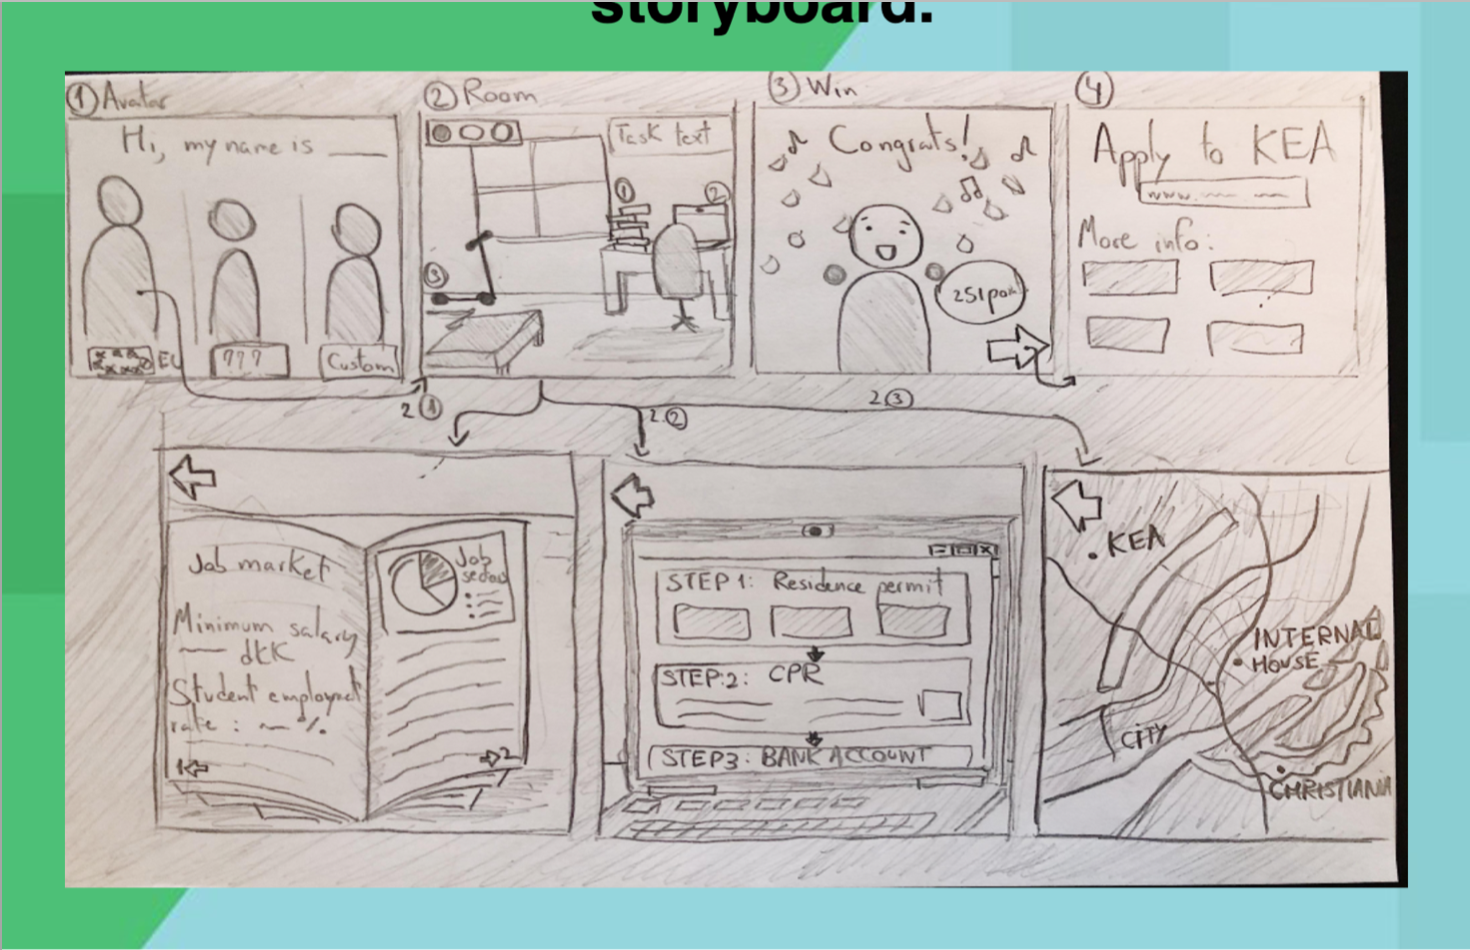 storyboard.
① Avatar
Hi, my name is ____
EU
???
Custom
② Room
Task text
①
②
③
③ Win
Congrats!
④
Apply to KEA
www.
More info:
2①
2.②
2③
Job market
Minimum salary
____ dKK
Student employmet
rate: %.
1
Job
2
STEP 1: Residence permit
STEP:2: CPR
STEP3: BANK ACCOUNT
KEA
INTERNAL
HOUSE
CITY
CHRISTIANIA